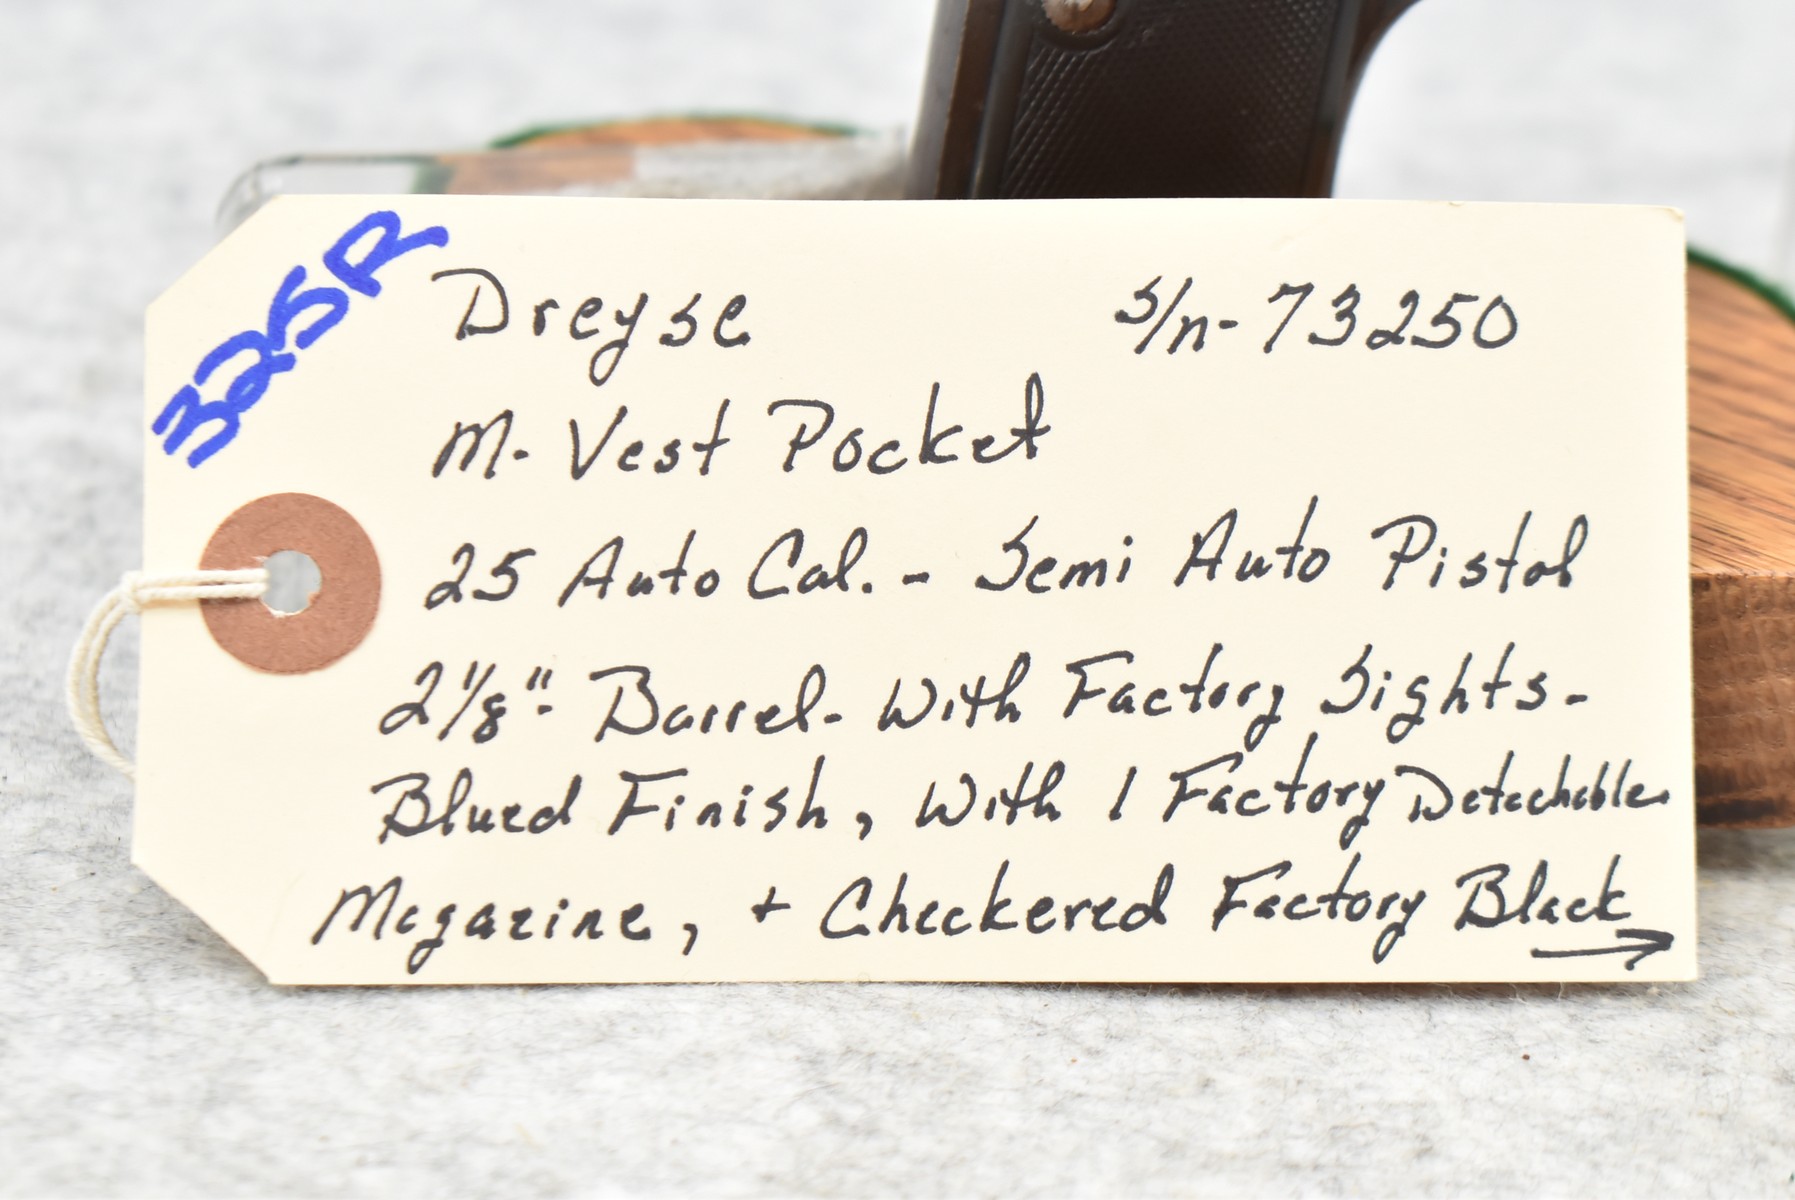 325R
Dreyse S/n- 73250
M- Vest Pocket
25 Auto Cal. - Semi Auto Pistol
2 1/8"- Barrel- With Factory Sights-
Blued Finish, With 1 Factory Detachable
Magazine, + Checkered Factory Black →